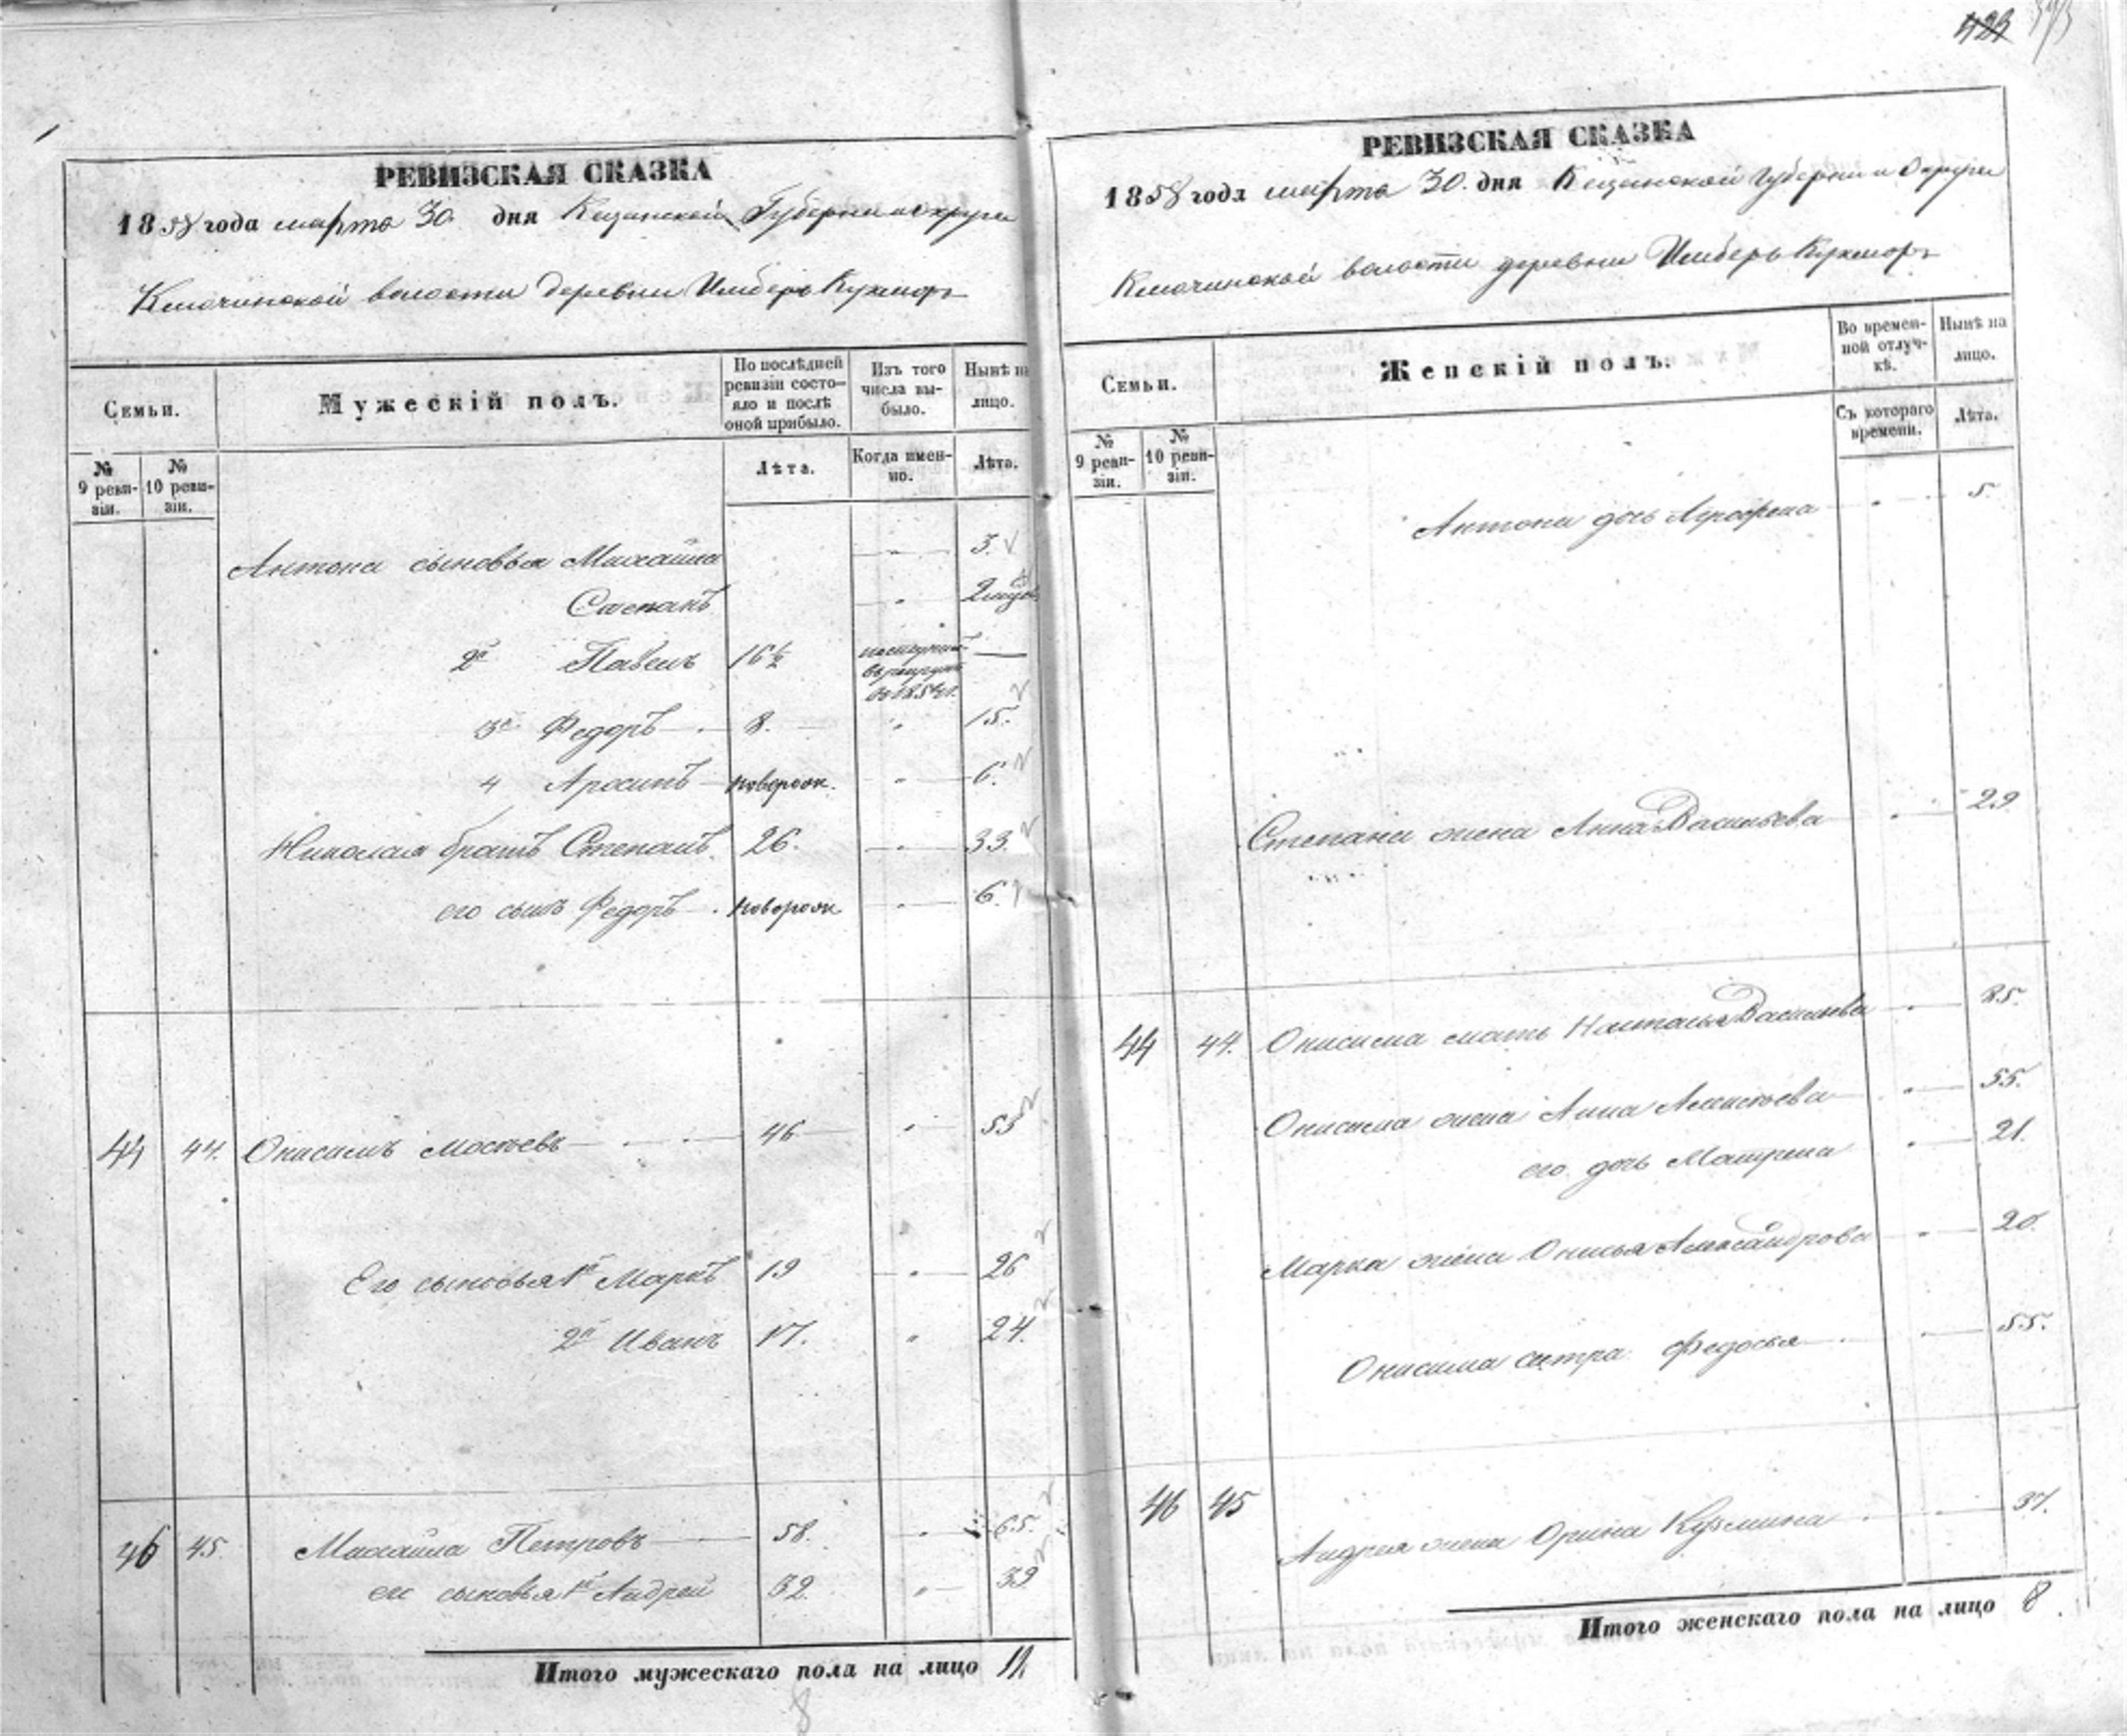 423
РЕВИЗСКАЯ СКАЗКА
1858 года марта 30. дня Казанской Губернии и округи
Ключинской волости деревни Имберь Кукморъ
Семьи.
Мужескій полъ.
По послѣдней ревизіи состо-
яло и послѣ
оной прибыло.
Изъ того
числа вы-
было.
Нынѣ на
лицо.
№
9 реви-
зіи.
№
10 реви-
зіи.
Лѣта.
Когда имен-
но.
Лѣта.
Антона сыновья Михайла " 3.
Степанъ " 2
2й Павелъ 16½ поступил в рекруты в 1854 г. —
3й Федоръ 8. " 15.
4 новорож. " 6.
Николая братъ Степанъ. 26. " 33.
его сынъ Федоръ новорож. " 6.
44 44. Онисимъ 46 " 53
Его сыновья 1й Маркъ 19 " 26
2й Иванъ 17. " 24.
46 45. Михайла Петровъ 58. " 65.
его сыновья 1й Андрей 32. " 39
Итого мужескаго пола на лицо 11.
8
РЕВИЗСКАЯ СКАЗКА
1858 года марта 30. дня Казанской Губернии и Округи
Ключинской волости деревни Имберь Кукморъ
Семьи.
Женскій полъ.
Во времен-
ной отлуч-
кѣ.
Нынѣ на
лицо.
№
9 реви-
зіи.
№
10 реви-
зіи.
Съ котораго
времени.
Лѣта.
Антона дочь " 5.
Степана жена Анна Васильева " 29
44 44. Онисима мать Наталья Васильева " 85.
Онисима жена Анна " 55.
его дочь Матрена " 21.
Марка жена Александрова " 20.
Онисима сестра Федосья " 55.
46 45 Андрея жена Орина Кузмина " 37.
Итого женскаго пола на лицо 8.